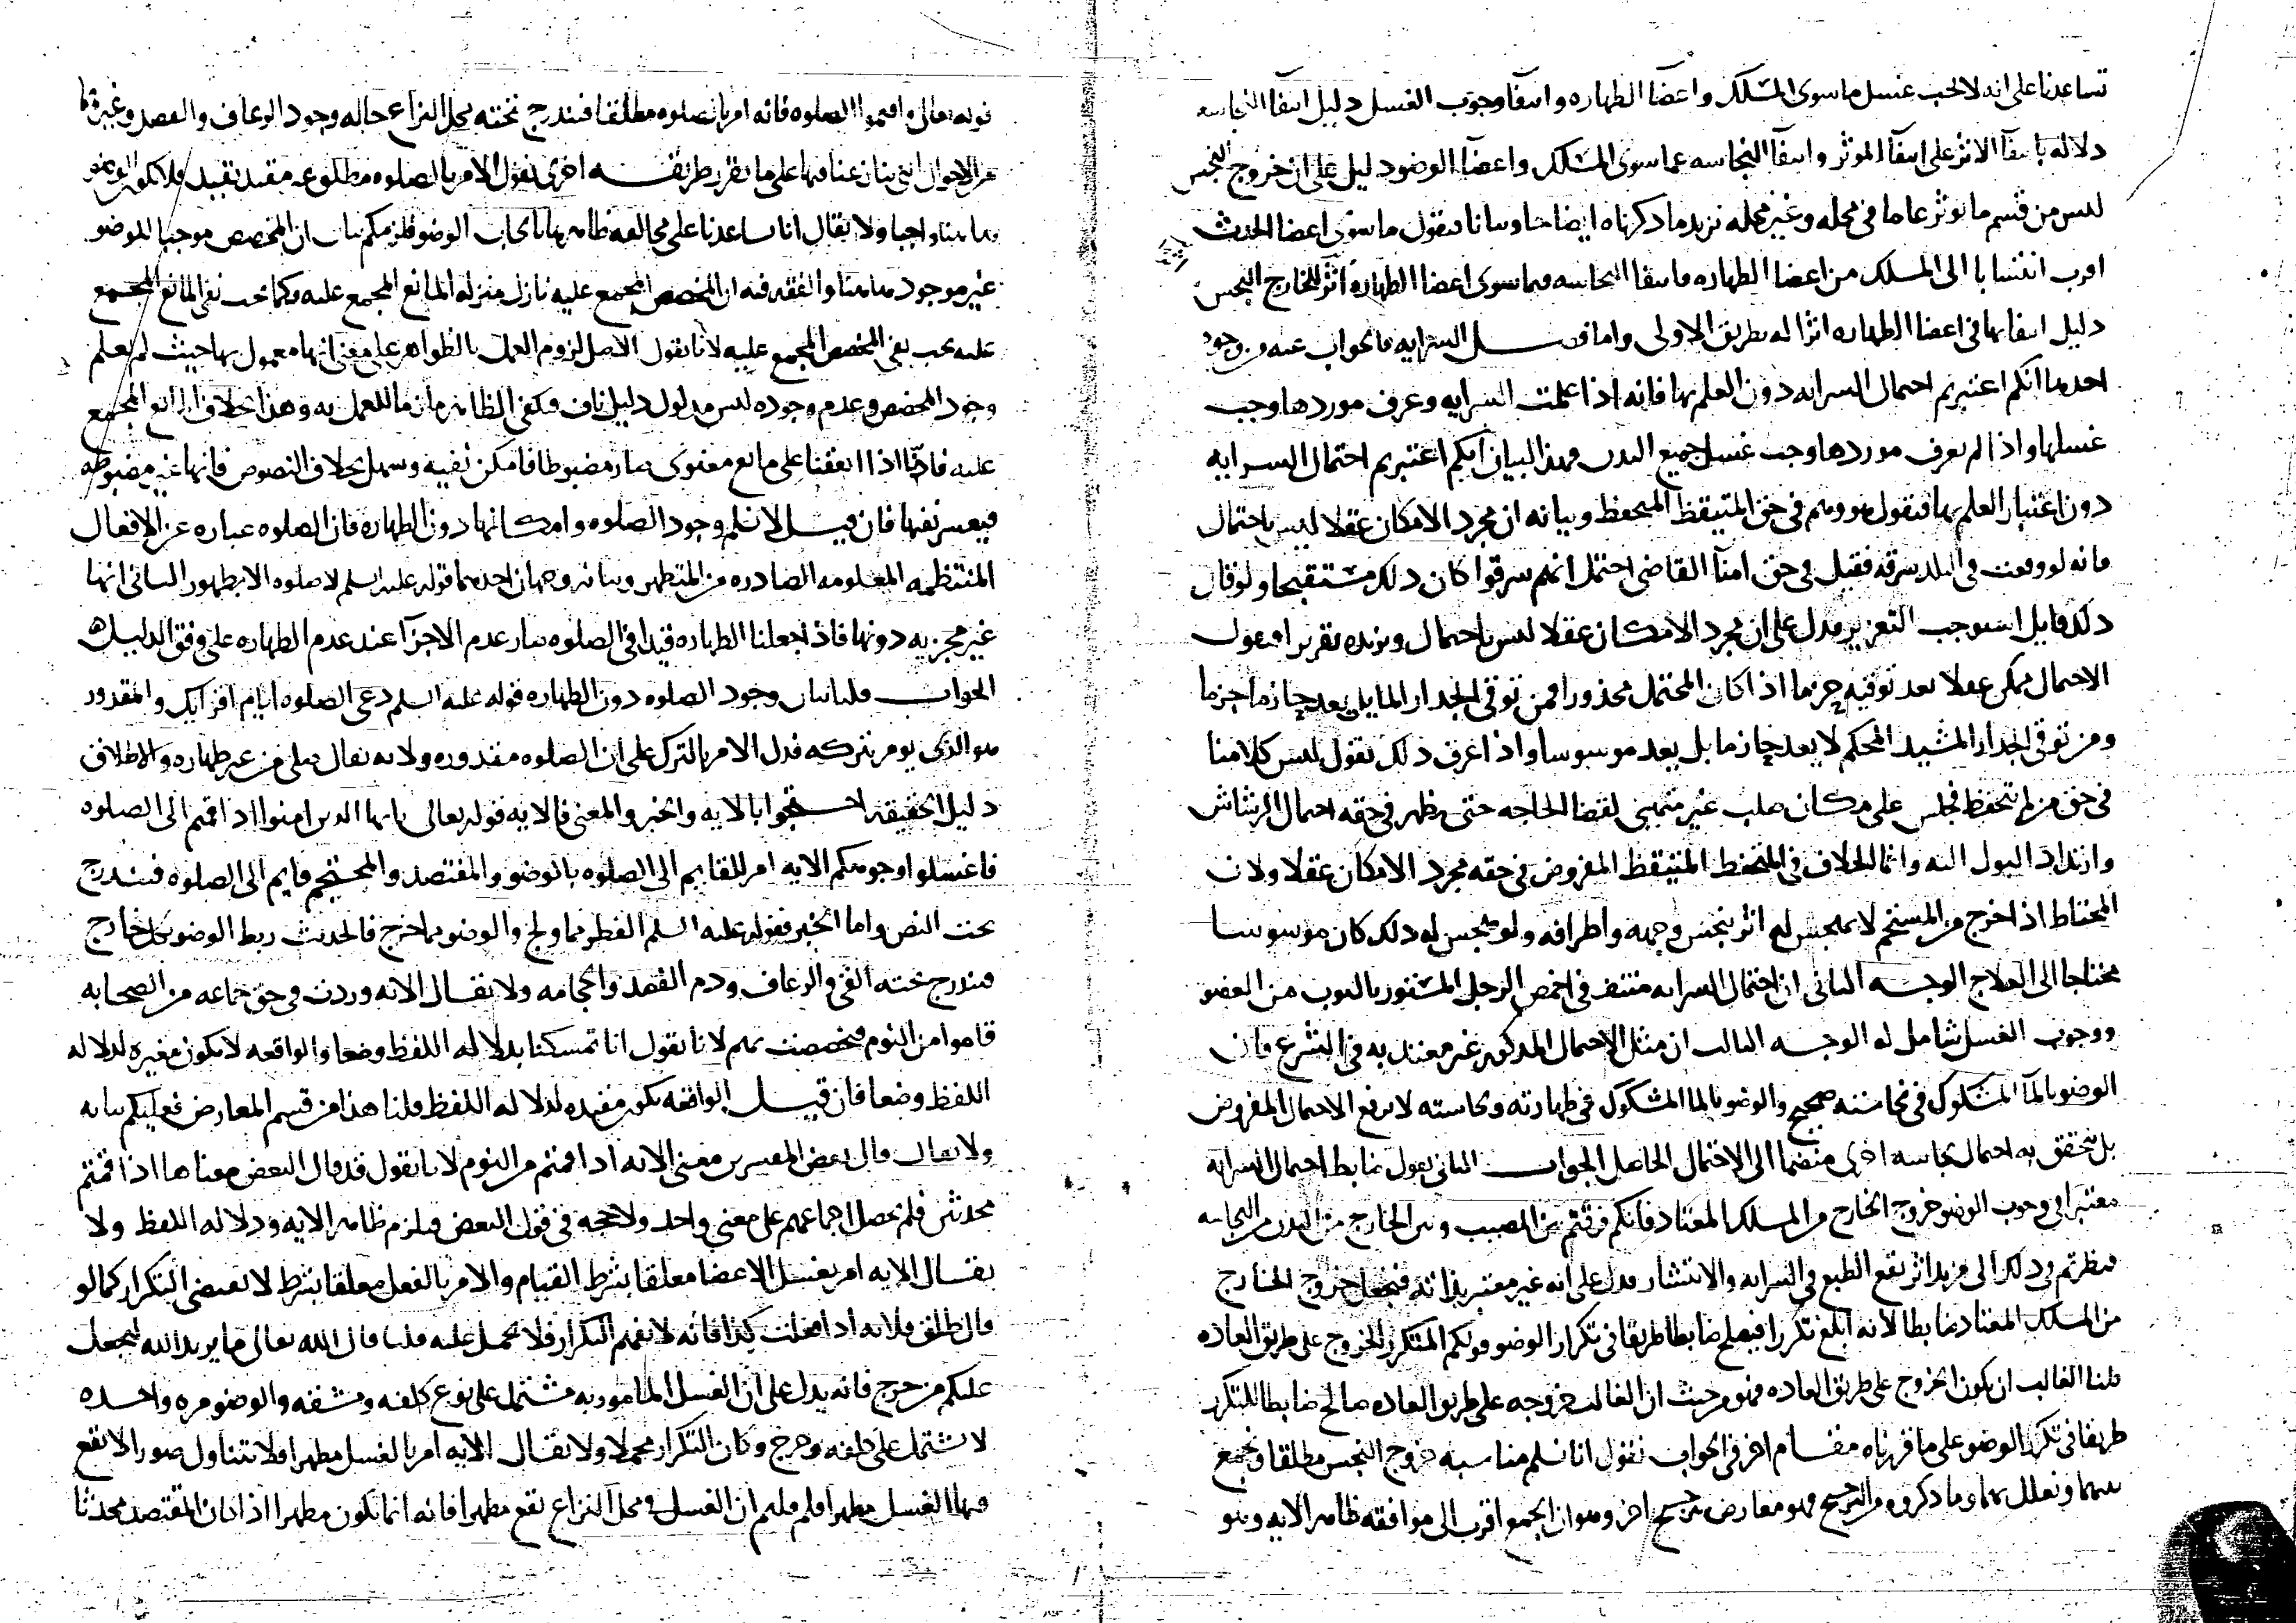 تساعدنا على انه لا يجب غسل ما سوى المسلك واعضا الطهاره وانتفا وجوب الغسل دليل انتفا النجاسه
دلاله بانتفا الاثر على انتفا الموثر وانتفا النجاسه عما سوى المسلك واعضا الوضو دليل على ان خروج النجس
ليس من قسم ما يوثر عاما في محله وغير محله نزيد ما ذكرناه ايضاحا وبيانا فنقول ما سوى اعضا الحدث
اقرب انتسابا الى المسلك من اعضا الطهاره فانتفا النجاسه فيما سوى اعضا الطهاره اثر للخارج النجس
دليل انتفايها في اعضا الطهاره اثرا له بطريق الاولى واما فصل السرايه فالجواب عنه من وجوه
احدها انكم اعتبرتم احتمال السرايه دون العلم بها فانه اذا علمت السرايه وعرف موردها وجب
غسلها واذا لم يعرف موردها وجب غسل جميع البدن فهذا البيان انكم اعتبرتم احتمال السرايه
دون اعتبار العلم بها فنقول هو وهم في حق المتيقظ المتحفظ وبيانه ان مجرد الامكان عقلا ليس باحتمال
فانه لو وقعت في البلد سرقه فقيل في حق امنا القاضي احتمل انهم سرقوا كان ذلك مستقبحا ولو قال
ذلك قايل استوجب التعزير فدل على ان مجرد الامكان عقلا ليس باحتمال ونزيده تقريرا فنقول
الاحتمال ممكن عقلا يعد توقيه حزما اذا كان المحتمل محذورا فمن توقى الجدار المايل يعد حازما جزما
ومن توقى الجدار المشيد المحكم لا يعد حازما بل يعد موسوسا واذا عرف ذلك نقول ليس كلامنا
في حق من لم يتحفظ فجلس على مكان صلب غير متميز لقضا الحاجه حتى يظهر في حقه احتمال الرشاش
وارتداد البول اليه وانما الخلاف في المتحفظ المتيقظ المفروض في حقه مجرد الامكان عقلا ولان
المحتاط اذا خرج من المستحم لا يهجس له اثر بنجس وجهه واطرافه ولو هجس له ذلك كان موسوسا
محتاجا الى العلاج الوجه الثاني ان احتمال السرايه منتف في اخمص الرجل المستور بالثوب من العضو
ووجوب الغسل شامل له الوجه الثالث ان مثل الاحتمال المذكور غير معتد به في الشرع فان
الوضو بالما المشكوك في نجاسته صحيح والوضو بالما المشكوك في طهارته ونجاسته لا يرفع الاحتمال المفروض
بل يتحقق به احتمال نجاسه اخرى منضما الى الاحتمال الحاصل الجواب الثاني نقول ضابط احتمال السرايه
معتبرا في وجوب الوضو خروج الخارج من المسلك المعتاد فانكم فرقتم بين المصيب وبين الخارج من البدن من النجاسه
فنظرتم في ذلك الى مزيد اثر يقع الطبع في السرايه والانتشار فدل على انه غير معتبر بذاته فنجعل خروج الخارج
من المسلك المعتاد ضابطا لانه ابلغ تكررا فيصلح ضابطا طريقا في تكرار الوضو قولكم المتكرر الخروج على طريق العاده
قلنا الغالب ان يكون الخروج على طريق العاده فهو من حيث ان الغالب خروجه على طريق العاده صالح ضابطا للتكرر
طريقا في تكرر الوضو على ما قررناه مقام اخر في الجواب نقول انا نسلم مناسبه خروج النجس مطلقا ونجمع
بينهما ونعلل بهما وما ذكروه من الترجيح فهو معارض بترجيح اخر وهو ان الجمع اقرب الى موافقه ظاهر الايه وهو
قوله تعالى واقيموا الصلوه فانه امر بالصلوه مطلقا فيندرج تحته محل النزاع حاله وجود الرعاف والفصد وغيرها
من الاحوال التي تنازعنا فيها على ما تقرر طريقه اخرى نقول الامر بالصلوه مطلق عن قيد تقييد فلا يكون الوضو
هاهنا واجبا ولا يقال انا تساعدنا على مخالفه ظاهرها بايجاب الوضو فلزمكم بيان ان المخصص موجبا للوضو
غير موجود هاهنا والفقه فيه ان المخصص المجمع عليه نازل منزله المانع المجمع عليه وكما يجب نفي المانع المجمع
عليه يجب نفي المخصص المجمع عليه لانا نقول الاصل لزوم العمل بالظواهر على معنى انها معمول بها حيث لم يعلم
وجود المخصص وعدم وجوده ليس مدلول دليل ناف فكفى الظاهر مانعا للعمل به وهذا بخلاف المانع المجمع
عليه فانا اذا اتفقنا على مانع معنوي صار مضبوطا فامكن نفيه وسهل بخلاف النصوص فانها غير مضبوطه
فيعسر نفيها فان قيل لا نسلم وجود الصلوه وامكانها دون الطهاره فان الصلوه عباره عن الافعال
المنتظمه المعلومه الصادره من المتطهر وبيانه وجهان احدهما قوله عليه السلم لا صلوه الا بطهور الثاني انها
غير مجزيه دونها فاذا جعلنا الطهاره قيدا في الصلوه صار عدم الاجزا عند عدم الطهاره على وفق الدليل
الجواب قلنا بيان وجود الصلوه دون الطهاره قوله عليه السلم دعي الصلوه ايام اقرايك والمقدور
هو الذي يومر بتركه فدل الامر بالترك على ان الصلوه مقدوره ولانه يقال صلى من غير طهاره والاطلاق
دليل الحقيقه احتجوا بالايه والخبر والمعنى فالايه قوله تعالى يا ايها الذين امنوا اذا قمتم الى الصلوه
فاغسلوا وجوهكم الايه امر للقايم الى الصلوه بالوضو والمفتصد والمحتجم قايم الى الصلوه فيندرج
تحت النص واما الخبر فقوله عليه السلم الفطر مما ولج والوضو مما خرج فالحديث ربط الوضو بكل خارج
فيندرج تحته القي والرعاف ودم الفصد والحجامه ولا يقال الايه وردت في حق جماعه من الصحابه
قاموا من النوم فتخصصت بهم لانا نقول انا تمسكنا بدلاله اللفظ وضعا والواقعه لا تكون مغيره لدلاله
اللفظ وضعا فان قيل الواقعه تكون مقيده لدلاله اللفظ قلنا هذا من قسم المعارض فعليكم بيانه
ولا يقال قال بعض المفسرين معنى الايه اذا قمتم من النوم لانا نقول قد قال البعض معناها اذا قمتم
محدثين فلم يحصل اجماعهم على معنى واحد ولا حجه في قول البعض فيلزم ظاهر الايه ودلاله اللفظ ولا
يقال الايه امر بغسل الاعضا معلقا بشرط القيام والامر بالفعل معلقا بشرط لا يقتضي التكرار كما لو
قال طلق فلانه اذا فعلت كذا فانه لا يفهم التكرار فلا يحمل عليه قلنا قال الله تعالى ما يريد الله ليجعل
عليكم من حرج فانه يدل على ان الغسل المامور به مشتمل على نوع كلفه ومشقه والوضو مره واحده
لا يشتمل على كلفه وحرج وكان التكرار محملا ولا يقال الايه امر بالغسل مطهرا فلا تتناول صورا لا يقع
فيها الغسل مطهرا فلم قلتم ان الغسل في محل النزاع يقع مطهرا فانه انما يكون مطهرا اذا كان المفتصد محدثا